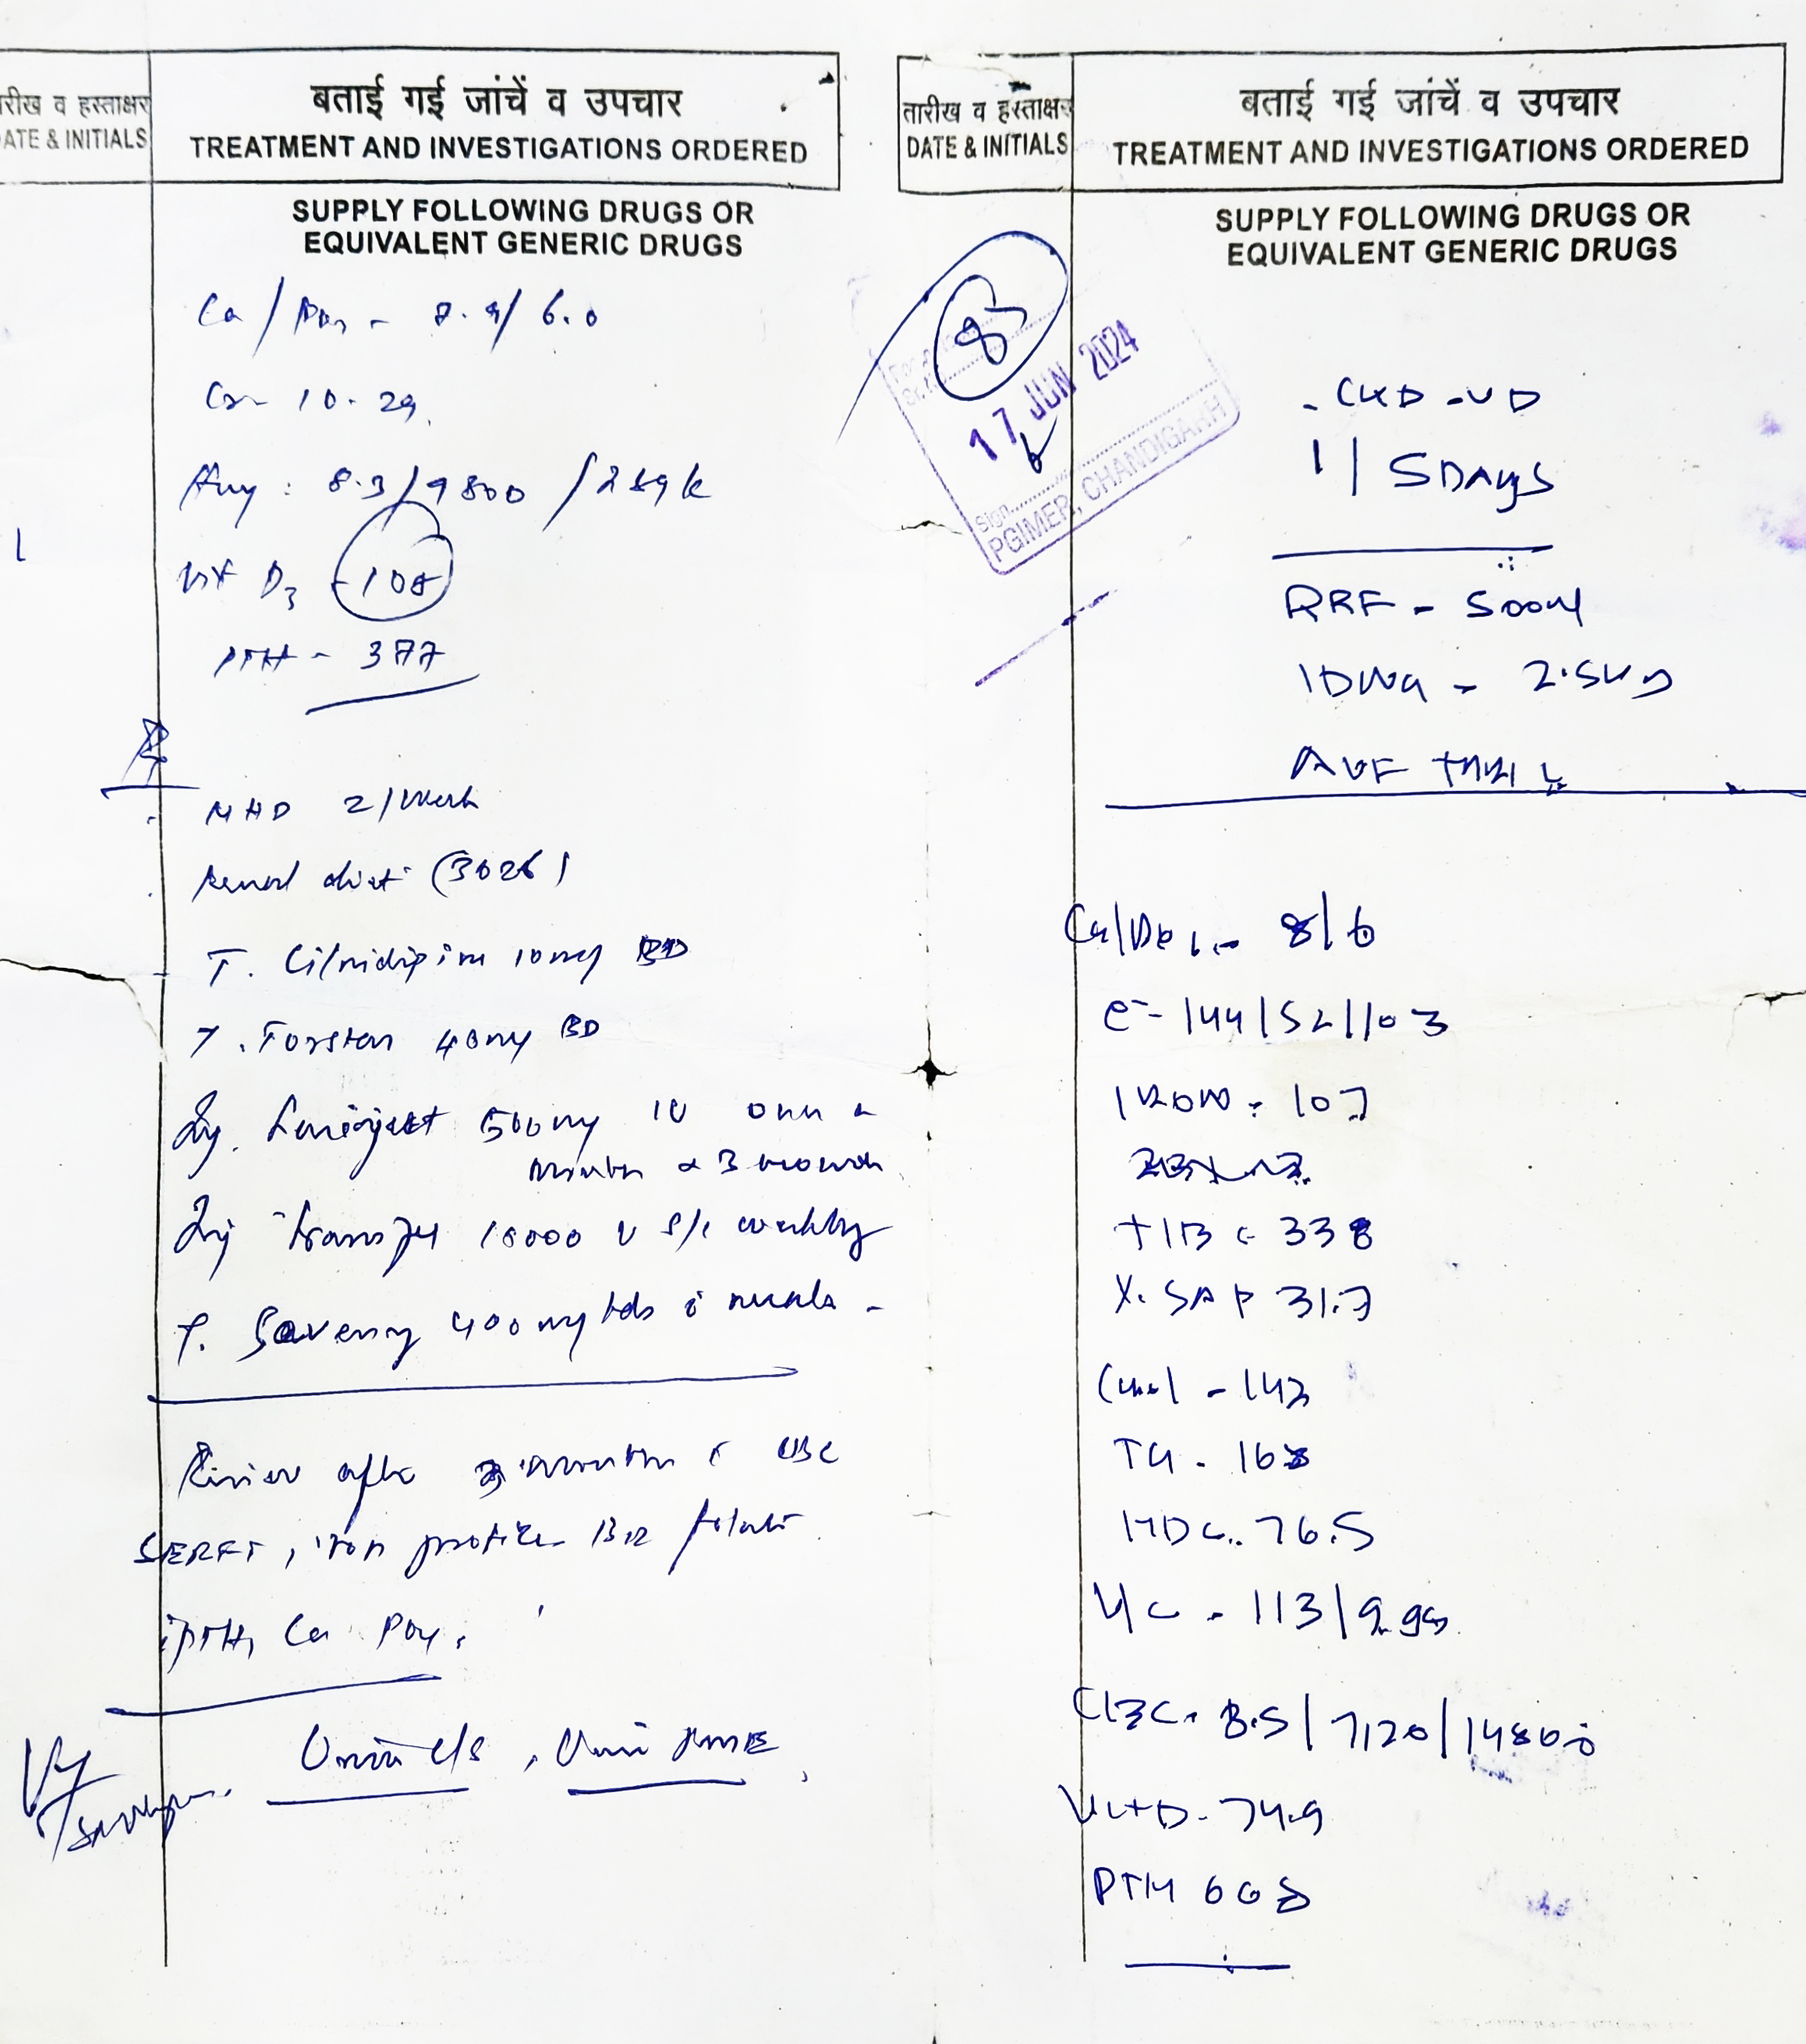 तारीख व हस्ताक्षर
DATE & INITIALS
बताई गई जांचें व उपचार
TREATMENT AND INVESTIGATIONS ORDERED
SUPPLY FOLLOWING DRUGS OR
EQUIVALENT GENERIC DRUGS
Ca / Pho - 8.9/6.0
Cr - 10.29
8.3/9800/289k
Vit D3 - 108
PTH - 377
MHD 2/week
Renal diet (3026)
T. Cilnidipine 10mg BD
T. 40mg BD
Inj. 500mg IV once a
month x 3 month
Inj 10000 U S/c weekly
T. 400mg tds c meals -
Review after months c CBC
SERFT, iron profile B12 folate
iPTH, Ca Po4.
Urine c/s, Urine RME
तारीख व हस्ताक्षर
DATE & INITIALS
बताई गई जांचें व उपचार
TREATMENT AND INVESTIGATIONS ORDERED
SUPPLY FOLLOWING DRUGS OR
EQUIVALENT GENERIC DRUGS
8
17 JUN 2024
Sign
PGIMER, CHANDIGARH
- CKD - VD
1/5 DAYS
RRF - 500ml
IDWG - 2.5KG
AVF
Ca/Po4 - 8/6
e- 144/5.2/103
IRON - 107
TIBC - 338
%. SAT 31.7
Chol - 143
TG - 168
HDL - 76.5
U/C - 113/9.95
CBC - 8.5/7120/14800
Vit D - 74.9
PTH 668